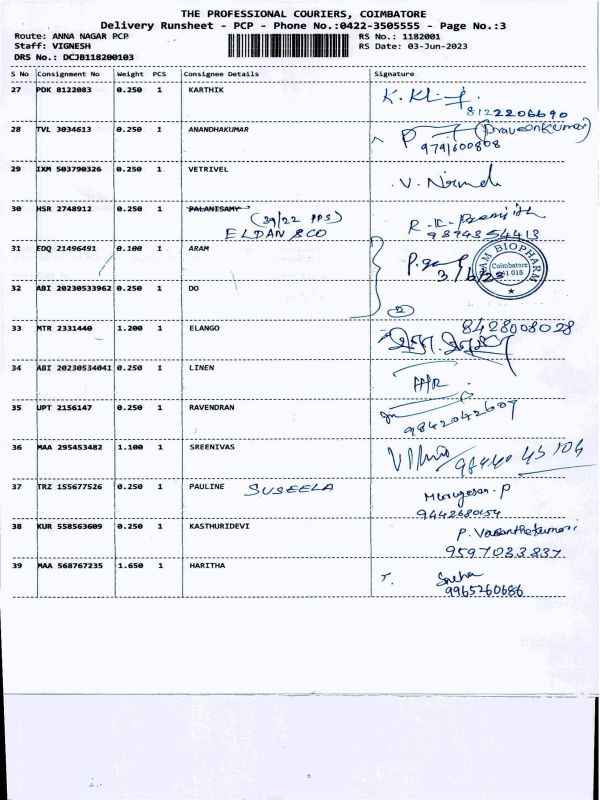 THE PROFESSIONAL COURIERS, COIMBATORE
Delivery Runsheet - PCP - Phone No.:0422-3505555 - Page No.:3
Route: ANNA NAGAR PCP RS No.: 1182001
Staff: VIGNESH RS Date: 03-Jun-2023
DRS No.: DCJB118200103
S No Consignment No Weight PCS Consignee Details Signature
27 PDK 8122083 0.250 1 KARTHIK
8122206690
28 TVL 3034613 0.250 1 ANANDHAKUMAR (Praveenkumar)
9791600808
29 IXM 503790326 0.250 1 VETRIVEL V. Nirmal
30 HSR 2748912 0.250 1 PALANISAMY
(39/22 PPS)
ELDAN & CO
9874354413
31 EDQ 21496491 0.100 1 ARAM
3/6/23
BIOPHARM
Coimbatore
32 ABI 20230533962 0.250 1 DO
2
33 MTR 2331440 1.200 1 ELANGO 8428008028
34 ABI 20230534041 0.250 1 LINEN
35 UPT 2156147 0.250 1 RAVENDRAN
9842042607
36 MAA 295453482 1.100 1 SREENIVAS
98440 45104
37 TRZ 155677526 0.250 1 PAULINE SUSEELA Murugesan. P
9442680154
38 KUR 558563609 0.250 1 KASTHURIDEVI P. Vasanthakumari
9597033837
39 MAA 568767235 1.650 1 HARITHA T. Sneha
9965260686